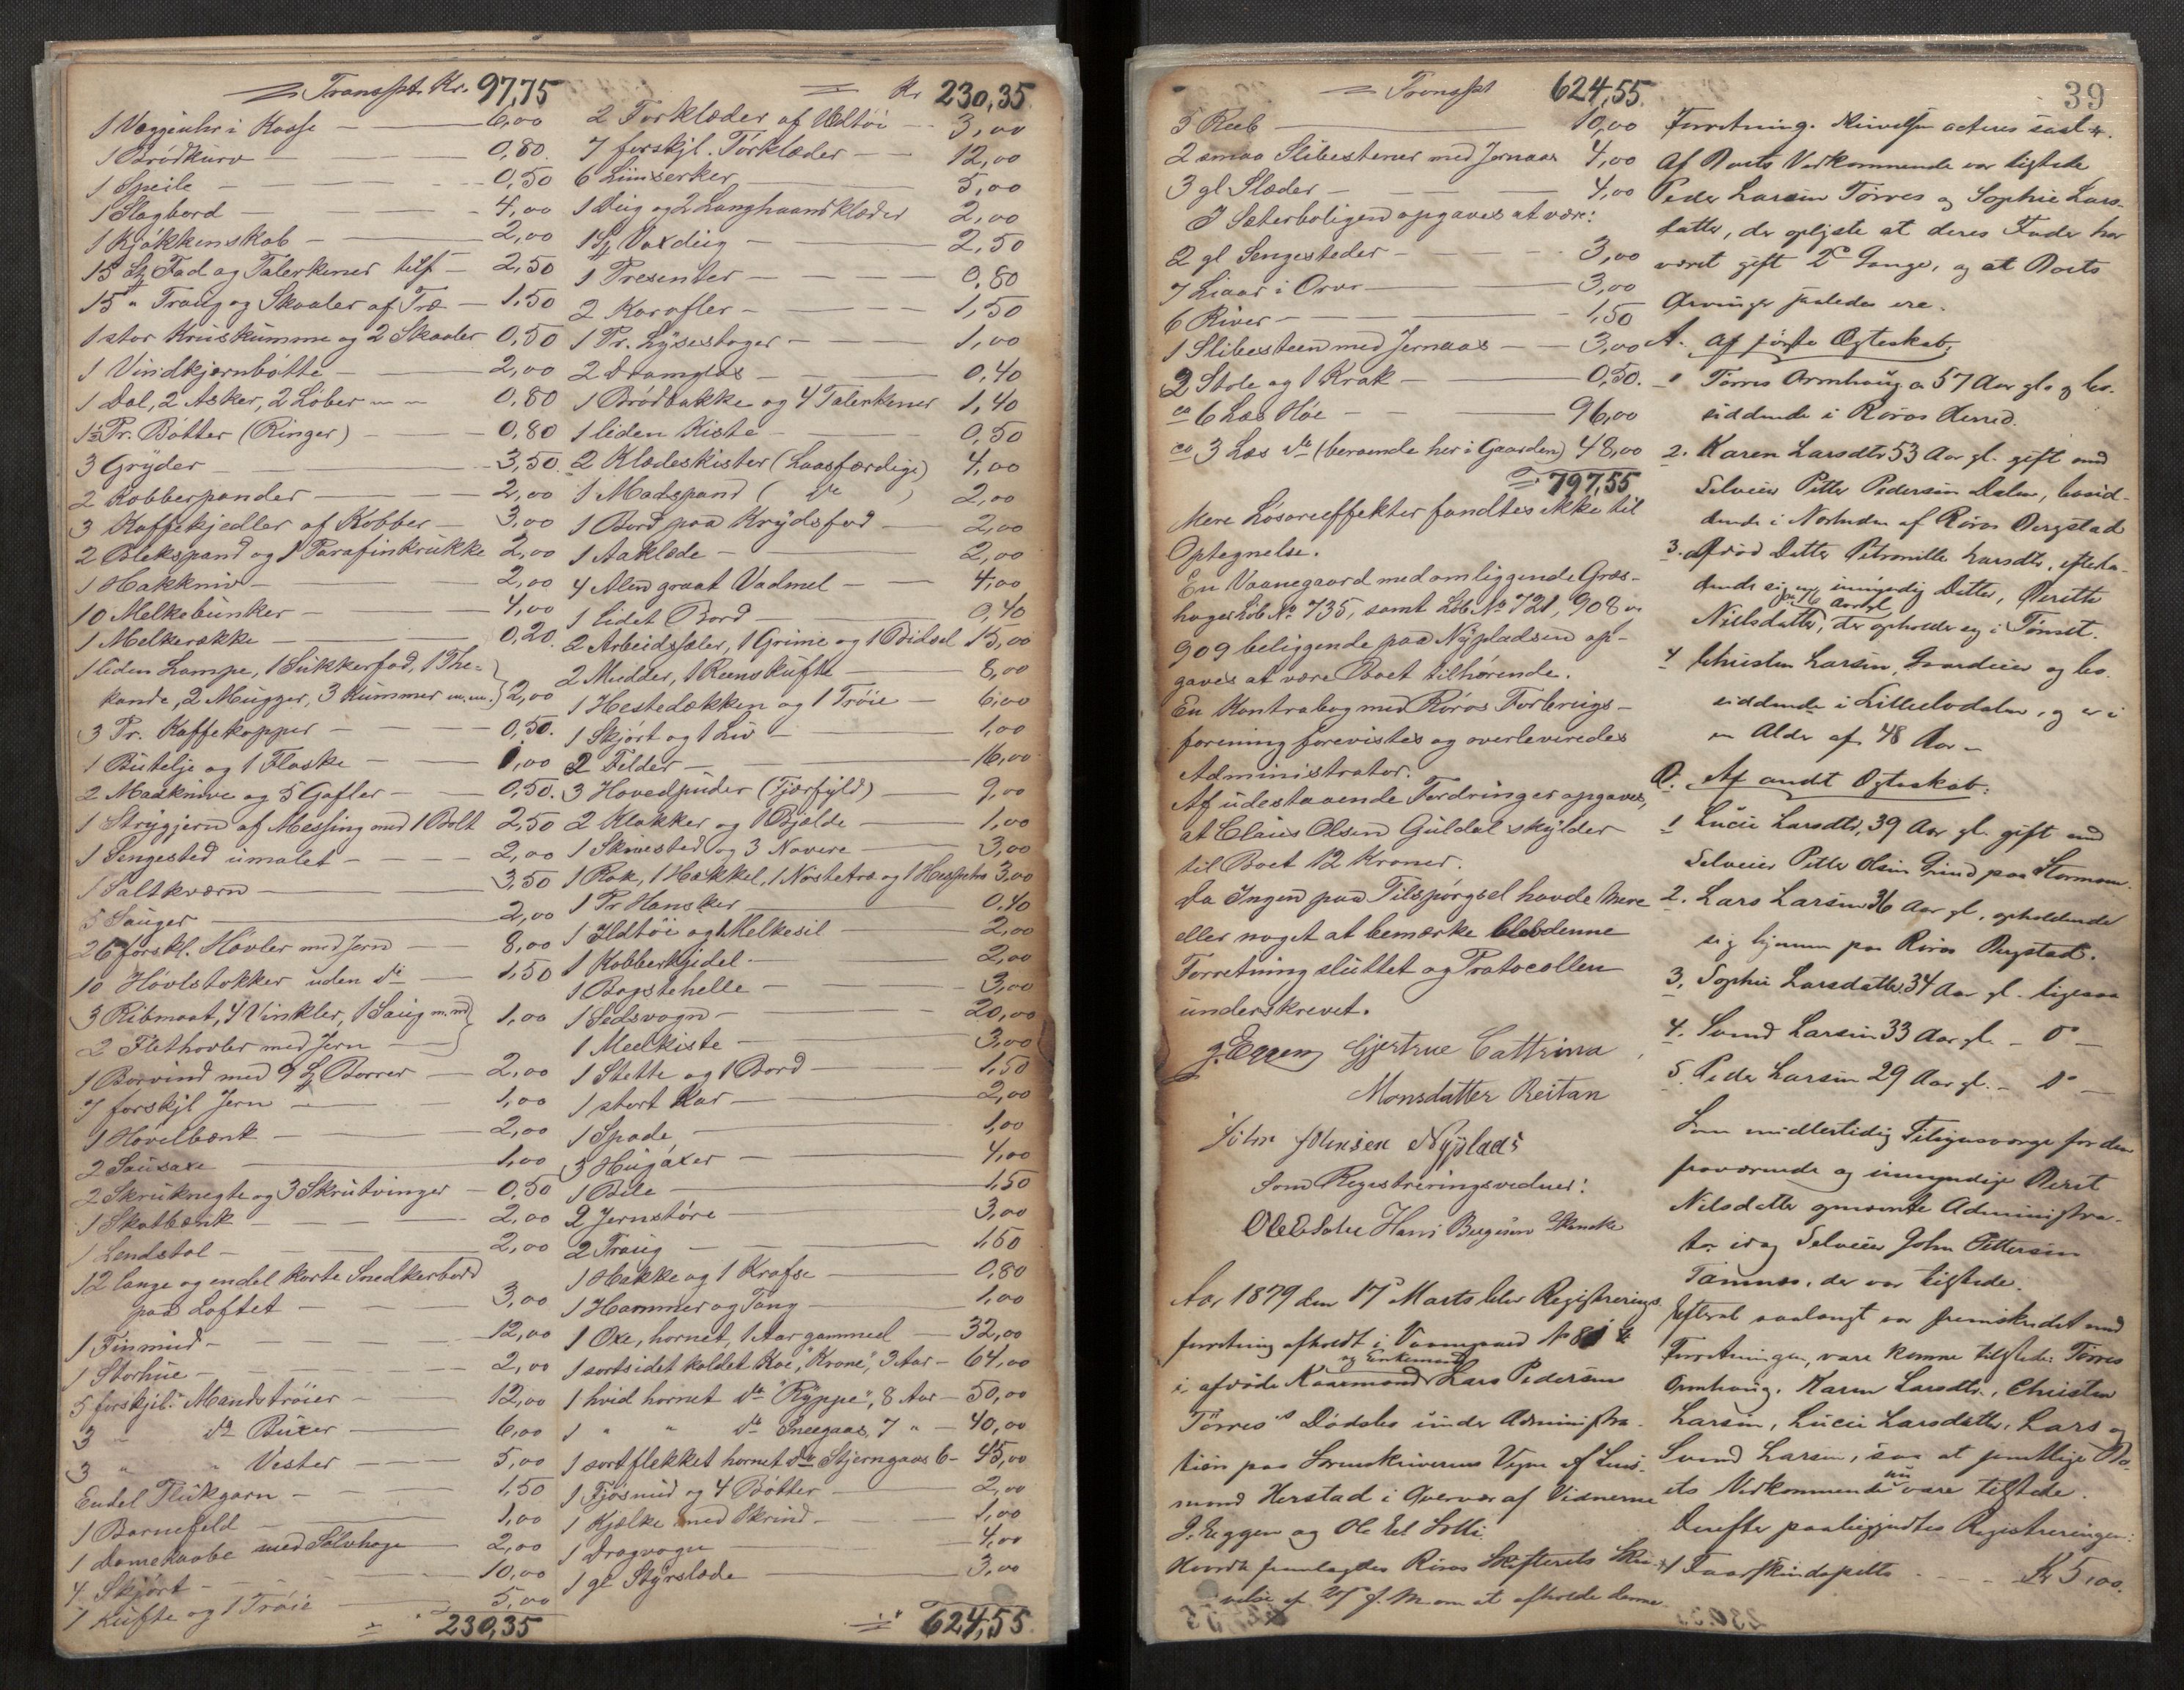 = Transpt. Kr. 97,75
1 Væggeuhr i Kasse — 6,00
1 Brödkurv — 0,80
1 Speile — 0,50
1 Slagbord — 4,00
1 Kjøkkenskab — 2,00
15 St Fad og Tallerkener tils — 2,50
15 " Traug og Skaaler af Træ — 1,50
1 stor Kruskumme og 2 Skaaler 0,50
1 Vindkjernbøtte — 2,00
1 Dal, 2 Asker, 2 Lober — 0,80
Pr. Bøtter (Ringer) — 0,80
3 Gryder — 3,50
2 Kobberpander — 2,00
3 Kaffekjedler af Kobber — 3,00
2 Blekspand og 1 Parafinkrukke 2,00
1 Hakkniv — 2,00
10 Melkebunker — 4,00
1 Melkerække — 0,20
1 liden Lampe, 1 Sukkerfad, 1 The-
kande, 2 Mugger, 3 Kummer m.m. 2,00
3 Pr. Kaffekopper — 0,50
1 Butelje og 1 Flaske — 1,00
2 Madknive og 5 Gafler — 0,50
1 Strygjern af Messing med 1 Bolt 2,50
1 Sengested umalet — 2,00
1 Saltkværn — 3,50
5 Sauger — 2,00
26 forskl. Høvler med Jern — 8,00
10 Høvlstokker uden do — 1,50
3 Ribmaat, 4 Vinkler, 1 Saug m.m.
2 Fløthovler med Jern — 1,00
1 Borvind med 9 St Borrer — 2,00
7 forskjl Jern — 1,00
1 Høvelbænk — 2,00
2 Sausaxe — 1,00
2 Skruknegte og 3 Skrutvinger — 0,50
1 Skotbænk — 2,00
1 Lendstol — 2,00
12 lange og endel korte Snedkerbord
paa Loftet — 3,00
1 Finmud — 12,00
1 Storhue — 2,00
5 forskjel. Mandstrøier — 12,00
3 " do Buxer — 6,00
3 " " Vester — 5,00
Endel Flukgarn — 1,50
1 Barnefeld — 1,00
1 Damekaabe med Sølvhage — 2,00
4 Skjørt — 10,00
1 Kufte og 1 Trøie — 5,00
= 230,35
= Kr 230,35
2 Forklæder af Uldtøi — 3,00
7 forskjl. Forklæder — 12,00
6 Linserker — 5,00
1 Dug og 2 Langhaandklæder 2,00
1 St Voxdug — 2,50
1 Presenter — 0,80
2 Karafler — 1,50
1 Pr. Lysestager — 1,00
2 Dramglas — 0,40
1 Brødbakke og 4 Talerkener 1,40
1 liden Kiste — 0,50
2 Klædeskister (Laasfærdige) 4,00
1 Madspand ( do ) 2,00
1 Bord paa Krydsfod — 2,00
1 Aaklæde — 2,00
4 Alen graat Vadmel — 4,00
1 lidet Bord — 0,40
2 Arbeidssæler, 1 Grime og 1 Bidsel 15,00
2 Mudder, 1 Reenskufte — 8,00
1 Hestedækken og 1 Trøie — 6,00
1 Skjørt og 1 Liv — 1,00
2 Felder — 16,00
3 Hovedpuder (Fjærfyld) — 9,00
2 Klokker og 1 Bjelde — 1,00
1 Skruested og 3 Navere — 3,00
1 Rok, 1 Hækkel, 1 Nøstetræ og 1 Hespetræ 3,00
1 Pr Hansker — 0,40
1 Ildtøi og Melkesil — 2,00
1 Kobberkjedel — 2,00
1 Bagstehelle — 3,00
1 Stedsvogn — 20,00
1 Meelkiste — 3,00
1 Stette og 1 Bord — 1,50
1 stort Kar — 2,00
1 Spade — 1,00
3 Hugaxer — 4,00
1 Bile — 1,50
2 Jernstøre — 3,00
2 Traug — 1,50
1 Hakke og 1 Krafse — 0,80
1 Hammer og Tang — 1,00
1 Oxe, hornet, 1 Aar gammel — 32,00
1 sortsidet kollet Koe, "Krone", 3 Aar — 64,00
1 hvid hornet do "Ryppe", 8 Aar — 50,00
1 " " do Sneegaas, 7 " — 40,00
1 sortflekket hornet do Stjerngaas 6 — 45,00
1 Fjøsmud og 4 Bøtter — 2,00
1 Kjælke med Skrind — 1,00
1 Dragvogn — 4,00
1 gl Styrslæde — 3,00
= 624,55
39
= Transpt 624,55
5 Reeb — 10,00
2 smaa Slibestener med Jernaas 4,00
3 gl Slæder — 4,00
I Sæterboligen opgaves at være:
2 gl Sengesteder — 3,00
7 Liaar i Orv — 3,00
6 River — 1,50
1 Slibesteen med Jernaas — 3,00
2 Stole og 1 Krak — 0,50
ca 6 Læs Høe — 96,00
ca 3 Læs do (beroende her i Gaarden) 48,00
= 797,55
Mere Løsøreeffekter fandtes ikke til
Optegnelse.
En Vaanegaard med omliggende Græs-
hage Løb No 735, samt Løb No 721, 908 og
909 beliggende paa Nypladsen op-
gaves at være Boet tilhørende.
En Kontrabog med Røros Forbrugs-
forening forevistes og overleveredes
Administrator.
Af udestaaende Fordringer opgaves,
at Claus Olsen Guldal skylder
til Boet 12 Kroner.
Da Ingen paa Tilspørgsel havde mere
eller noget at bemærke blev denne
Forretning sluttet og Protocollen
underskrevet.
J. Eggen Gjertrue Cattrina
Monsdatter Reitan
John Johnsen Nyplads
Som Registreringsvidner:
Ole E Sohli Hans Bergesen Skancke
Aar 1879 den 17de Marts blev Registrerings
forretning afholdt i Vaanegaard No 81
i afdøde og Enkemand Lars Pedersen
Tørres's Dødsbo under Administra-
tion paa Sorenskriverens Vegne af Lens-
mand Herstad i Overvær af Vidnerne
J. Eggen og Ole Sohli.
Hvorda fremlagdes Røros Skifterets Skri-
velse af f. M. om at afholde denne
Forretning. Skrivelsen acteres
Af Boets Vedkommende var tilstede
Peder Larsen Tørres og Sophie Lars-
datter, der oplyste at deres Fader har
været gift 2de Gange, og at Boets
Arvinger saaledes ere.
A. Af første Ægteskab:
1 Tørres Armhaug 57 Aar gl. og bo-
siddende i Røros Herred.
2. Karen Larsdtr 53 Aar gl. gift med
Selveier Petter Pedersen Dalen, bosid-
dende i Norderen af Røros Bergstad
3. Afdød Datter Petronille Larsdtr, efterla-
dende sig umyndig Datter, Beritte
Nielsdatter, der opholder sig i Tønset.
4 Christen Larsen, Gaardeier og bo-
siddende i Lilleelvdalen, og er i
en Alder af 48 Aar.
B. Af andet Ægteskab:
1 Lucie Larsdtr, 39 Aar gl. gift med
Selveier Petter Olsen Grind paa
2. Lars Larsen 36 Aar gl, opholdende
sig hjemme paa Røros Bergstad.
3. Sophie Larsdatter 34 Aar gl. ligesaa
4. Svend Larsen 33 Aar gl. — do —
5. Peder Larsen 29 Aar gl. — do —
Som midlertidig Tilsynsværge for den
fraværende og umyndige Berit
Nilsdatter opnævnte Administra-
tor idag Selveier John Pettersen
Tamnes, der var tilstede.
Efterat saalangt var fremskredet med
Forretningen, vare komne tilstede: Tørres
Armhaug, Karen Larsdtr., Christen
Larsen, Lucie Larsdatter, Lars og
Svend Larsen, saa at samtlige Bo-
ets Vedkommende nu vare tilstede.
Derefter paabegyndtes Registreringen:
1 Faarskindspelts — Kr 5,00